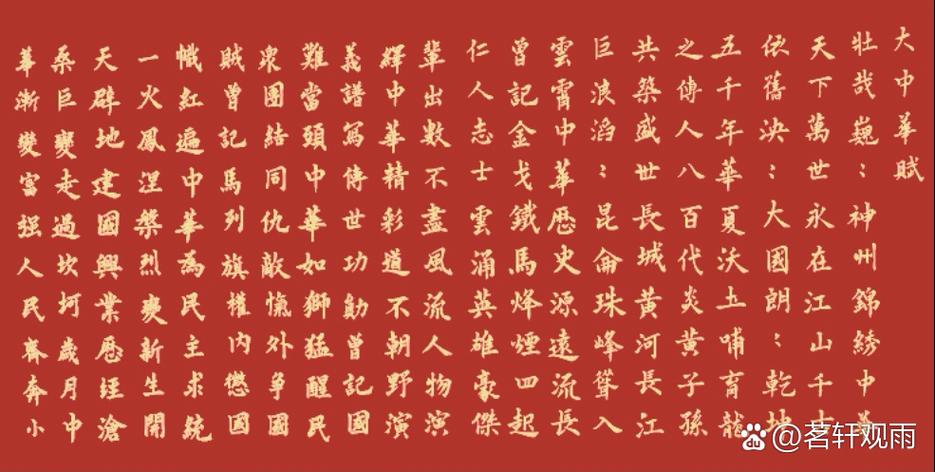 大中華賦
壯哉巍〻神州錦綉中
天下萬世永在江山千
依舊泱〻大國朗〻乾
五千年華夏沃土哺育龍
之傳人八百代炎黃子孫
共築盛世長城黃河長江
巨浪滔〻昆侖珠峰聳入
雲霄中華歷史源遠流長
曾記金戈鐵馬烽煙四起
仁人志士雲涌英雄豪傑
輩出數不盡風流人物演
繹中華精彩道不朝野演
義譜寫傳世功勛曾記國
難當頭中華如獅猛醒民
衆團結同仇敵愾外爭國
賊曾記馬列旗權內懲國
幟紅遍中華為民主求統
一火鳳涅槃烈爽新生開
天辟地建國興業歷經滄
桑巨變走過坎坷歲月中
華漸變富强人民齊奔小
Baidu @茗轩观雨